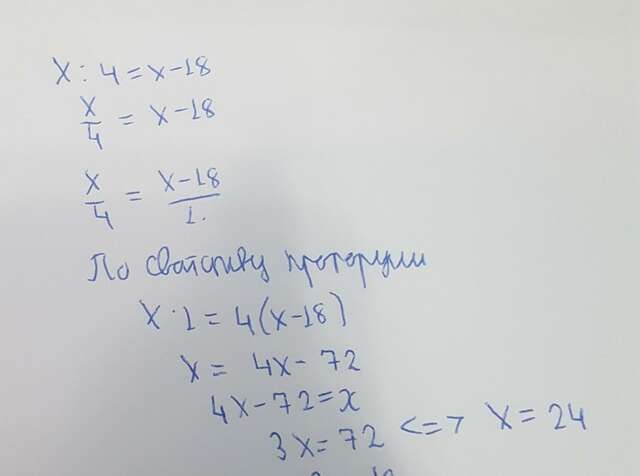 x : 4 = x - 18
x/4 = x - 18
x/4 = (x - 18)/1.
По свойству пропорции
x · 1 = 4(x - 18)
x = 4x - 72
4x - 72 = x
3x = 72 <=> x = 24